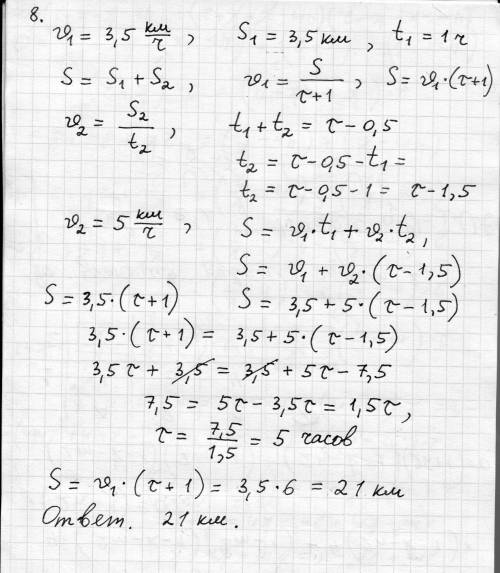 8.
𝜗₁ = 3,5 км/ч, S₁ = 3,5 км, t₁ = 1 ч
S = S₁ + S₂, 𝜗₁ = S/(τ+1), S = 𝜗₁·(τ+1)
𝜗₂ = S₂/t₂, t₁ + t₂ = τ − 0,5
t₂ = τ − 0,5 − t₁ =
t₂ = τ − 0,5 − 1 = τ − 1,5
𝜗₂ = 5 км/ч, S = 𝜗₁·t₁ + 𝜗₂·t₂,
S = 𝜗₁ + 𝜗₂·(τ − 1,5)
S = 3,5·(τ+1) S = 3,5 + 5·(τ − 1,5)
3,5·(τ+1) = 3,5 + 5·(τ − 1,5)
3,5τ + 3,5 = 3,5 + 5τ − 7,5
7,5 = 5τ − 3,5τ = 1,5τ,
τ = 7,5/1,5 = 5 часов
S = 𝜗₁·(τ + 1) = 3,5·6 = 21 км
Ответ. 21 км.